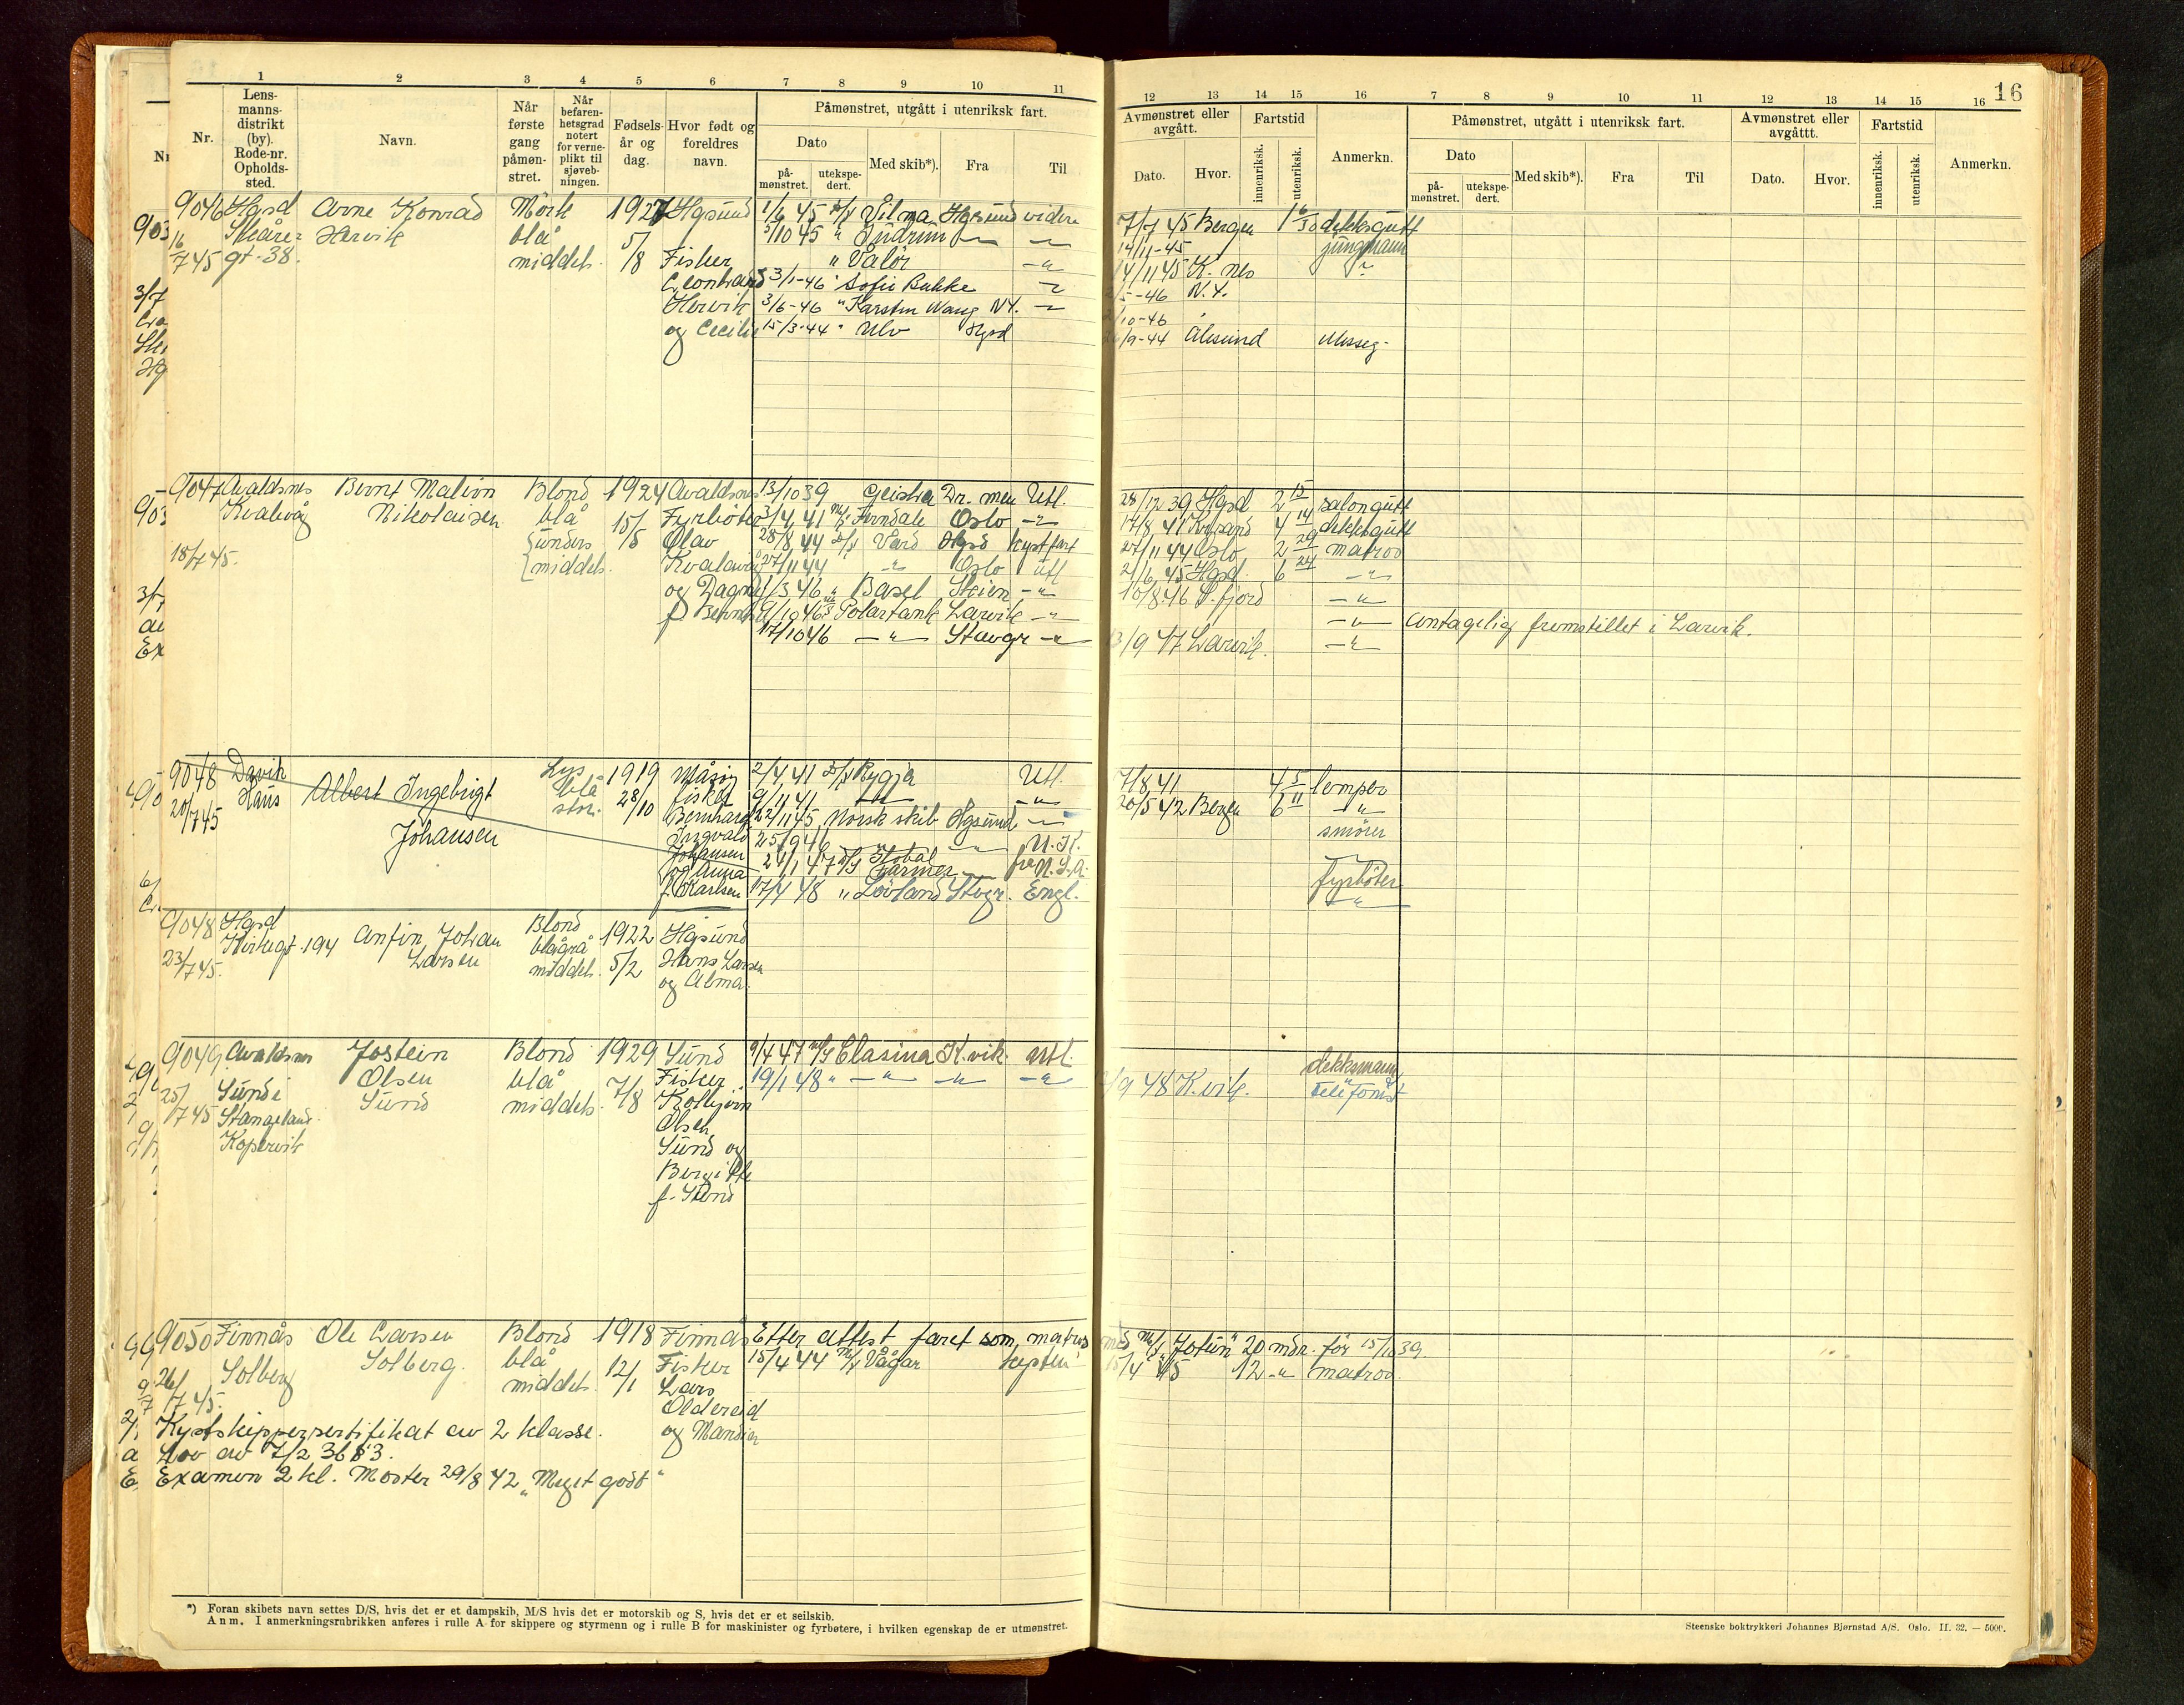 16
1 2 3 4 5 6 7 8 9 10 11
12 13 14 15 16 7 8 9 10 11 12 13 14 15 16
Nr.
Lens-
manns-
distrikt
(by).
Rode-nr.
Opholds-
sted.
Navn.
Når
første
gang
påmøn-
stret.
Når
befaren-
hetsgrad
notert
for verne-
plikt til
sjøveb-
ningen.
Fødsels-
år og
dag.
Hvor født og
foreldres
navn.
Påmønstret, utgått i utenriksk fart.
Dato
på-
mønstret.
utekspe-
dert.
Med skib*).
Fra
Til
Avmønstret eller
avgått.
Dato.
Hvor.
Fartstid
innenriksk.
utenriksk.
Anmerkn.
Påmønstret, utgått i utenriksk fart.
Dato
på-
mønstret.
utekspe-
dert.
Med skib*).
Fra
Til
Avmønstret eller
avgåttt.
Dato.
Hvor.
Fartstid
innenriksk.
utenriksk.
Anmerkn.
9046 Hgsd Arne Konrad Mørk 1927 Hgsund 1/6 45 D/S Vilma Hgsund videre 7/7 45 Bergen 1 6/30 dekksgutt
16/7 45 Skåre- Hervik blå 5/8 5/10 45 " Gudrun —"— —"— 14/11-45 jungmann
gt-38. middels. Fisker " Valör —"— 14/11 45 K. nes "
Leonhard 3/1-46 " Sofie Bakke —"— /5-46 N.Y.
Hervik 3/6-46 " Karsten Wang N.Y. —"— /10-46
og Cecilie 15/3-44 " Ulv Hgsd /9-44 Ålesund Messeg-
9047 Avaldsnes Bernt Malvin Blond 1924 Avaldsnes 13/10 39 Geisha Dr.men Utl. 28/12 39 Hgsd 2 15 salongutt
Kvalavåg Nikolaisen blå 15/5 Fyrbøter 3/4 41 M/S Ferndale Oslo —"— 17/8 41 Kr.sand 4 14 dekksgutt
unders Olav 28/8 44 D/S Vard Hgsd kystfart 27/11 44 Oslo 2 29 matros
18/7 45. middels. Kvalavåg 27/11 44 —"— Oslo utl 21/6 45 Hgsd. 6 24 —"—
og Dagny 1/3 46 " Basel Skien —"— 10/8 46 S.fjord —"—
9/10 46 M/S Polartank Larvik —"— —"— Antagelig fremstillet i Larvik.
17/10 46 —"— Stavgr —"— 13/9 47 Larvik. —"—
9048 Davik Albert Ingebrigt Lys 1919 Måsøy 2/4 41 D/S Rygja Utl. 7/8 41 4 5 lemper
20/7 45 Haus Johansen blå 28/10 fisker 9/11 41 —"— —"— 20/5 42 Bergen 6 11 —"—
stor. Bernhard 22/11 45 Norsk skib Hgsund —"— smører
Ingvald 25/9 46 —"— —"— U.K.
Johansen 24/1 47 Farmer —"— fyrbøter
og Anna
f. Karlsen 17/1 48 " Lovland Stvgr. Engl. —"—
9048 Hgsd Anfin Johan Blond 1922 Hgsund
23/7 45. Kirkegt. 194 Larsen blågrå 5/2 Hans Larsen
middels. og Alma.
9049 Avaldsnes Jostein Blond 1929 Sund 9/4 47 M/S Clasina K.vik utl. dekksmann
25/7 45 Sund i Olsen blå 7/8 Fisker 19/1 48 " —"— —"— —"— /9 48 K.vik. telefonist
Stangeland Sund middels. Kolbjørn
Kopervik Olsen
Sund og
Bergitte
f. Sund
9050 Finnås Ole Larsen Blond 1918 Finnås Etter attest faret som matros med M/S "Jotun" 20 mdr. før 15/11 39.
26/7 45. Solberg Solberg. blå 12/1 Fisker 15/4 44 M/S Vågar kysten 15/4 45 12 —"— matros.
middels. Lars
Oldereid
og Mandia
Kystskippersertifikat av 2 klasse.
Lov av 7/2 36 § 3.
Examen 2 kl. Moster 29/8 42 „Meget godt"
*) Foran skibets navn settes D/S, hvis det er et dampskib, M/S hvis det er motorskib og S, hvis det er et seilskib.
Anm. I anmerkningsrubrikken anføres i rulle A for skippere og styrmenn og i rulle B for maskinister og fyrbøtere, i hvilken egenskap de er utmønstret.
Steenske boktrykkeri Johannes Bjørnstad A/S. Oslo. II. 32. — 5000.